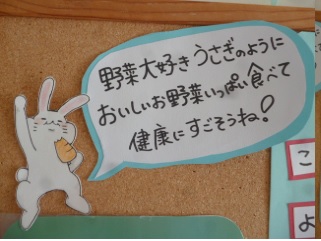 野菜大好きうさぎのように
おいしいお野菜いっぱい食べて
健康にすごそうね!
こ
よ